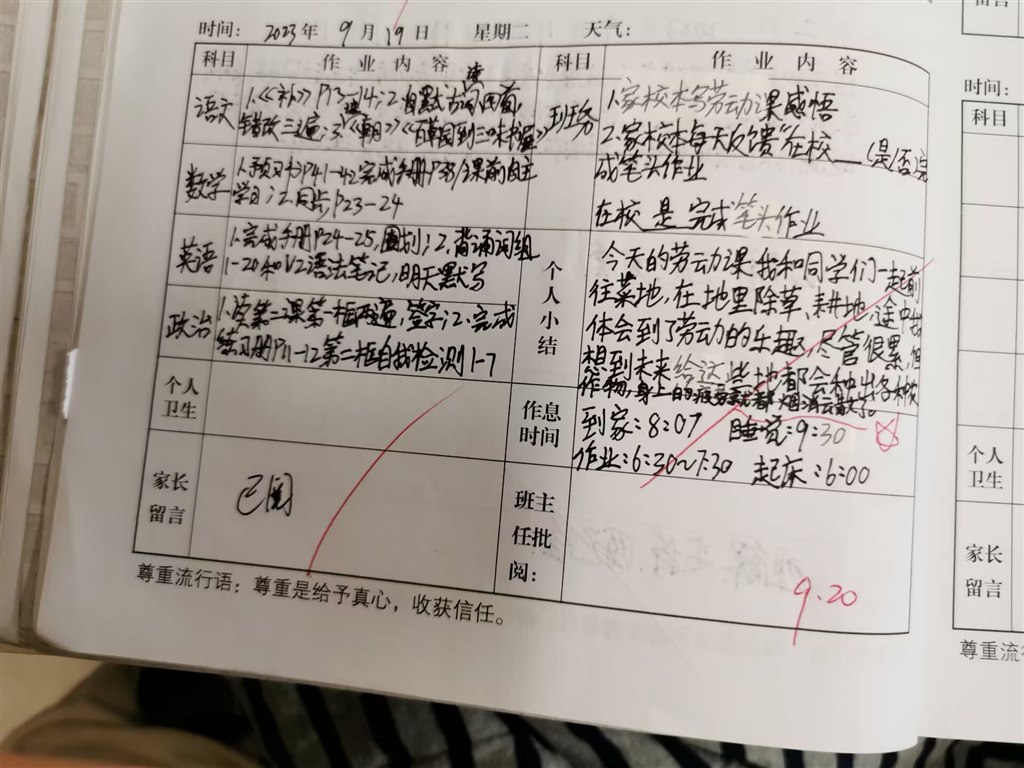 时间：2023年9月19日 星期二 天气：
科目 作业内容 科目 作业内容
语文 1.《补》P13-14；2.自默古词四首，
错改三遍；3.读《朝》《百草园到三味书屋》
班务 1.家校本写劳动课感悟
2.家校本每天反馈“在校___(是否完
成笔头作业
在校 是 完成笔头作业
数学 1.预习书P41-42完成手册P38课前自主
学习；2.同步P23-24
英语 1.完成手册P24-25，圈划；2.背诵词组
1-20和U2语法笔记，明天默写
政治 1.读第二课第一框两遍，签字；2.完成
练习册P11-12第二框自我检测1-7
个人小结
今天的劳动课我和同学们一起前
往菜地，在地里除草、耕地，途中我
体会到了劳动的乐趣，尽管很累，但
想到未来给这些地都会种出各种农
作物，身上的疲劳就都烟消云散了。
个人
卫生
作息
时间
到家：8:07 睡觉：9:30
作业：6:30~7:30 起床：6:00
家长
留言
已阅
班主
任批
阅：
9.20
尊重流行语：尊重是给予真心，收获信任。
留言
时间：
科目
个人
卫生
家长
留言
尊重流